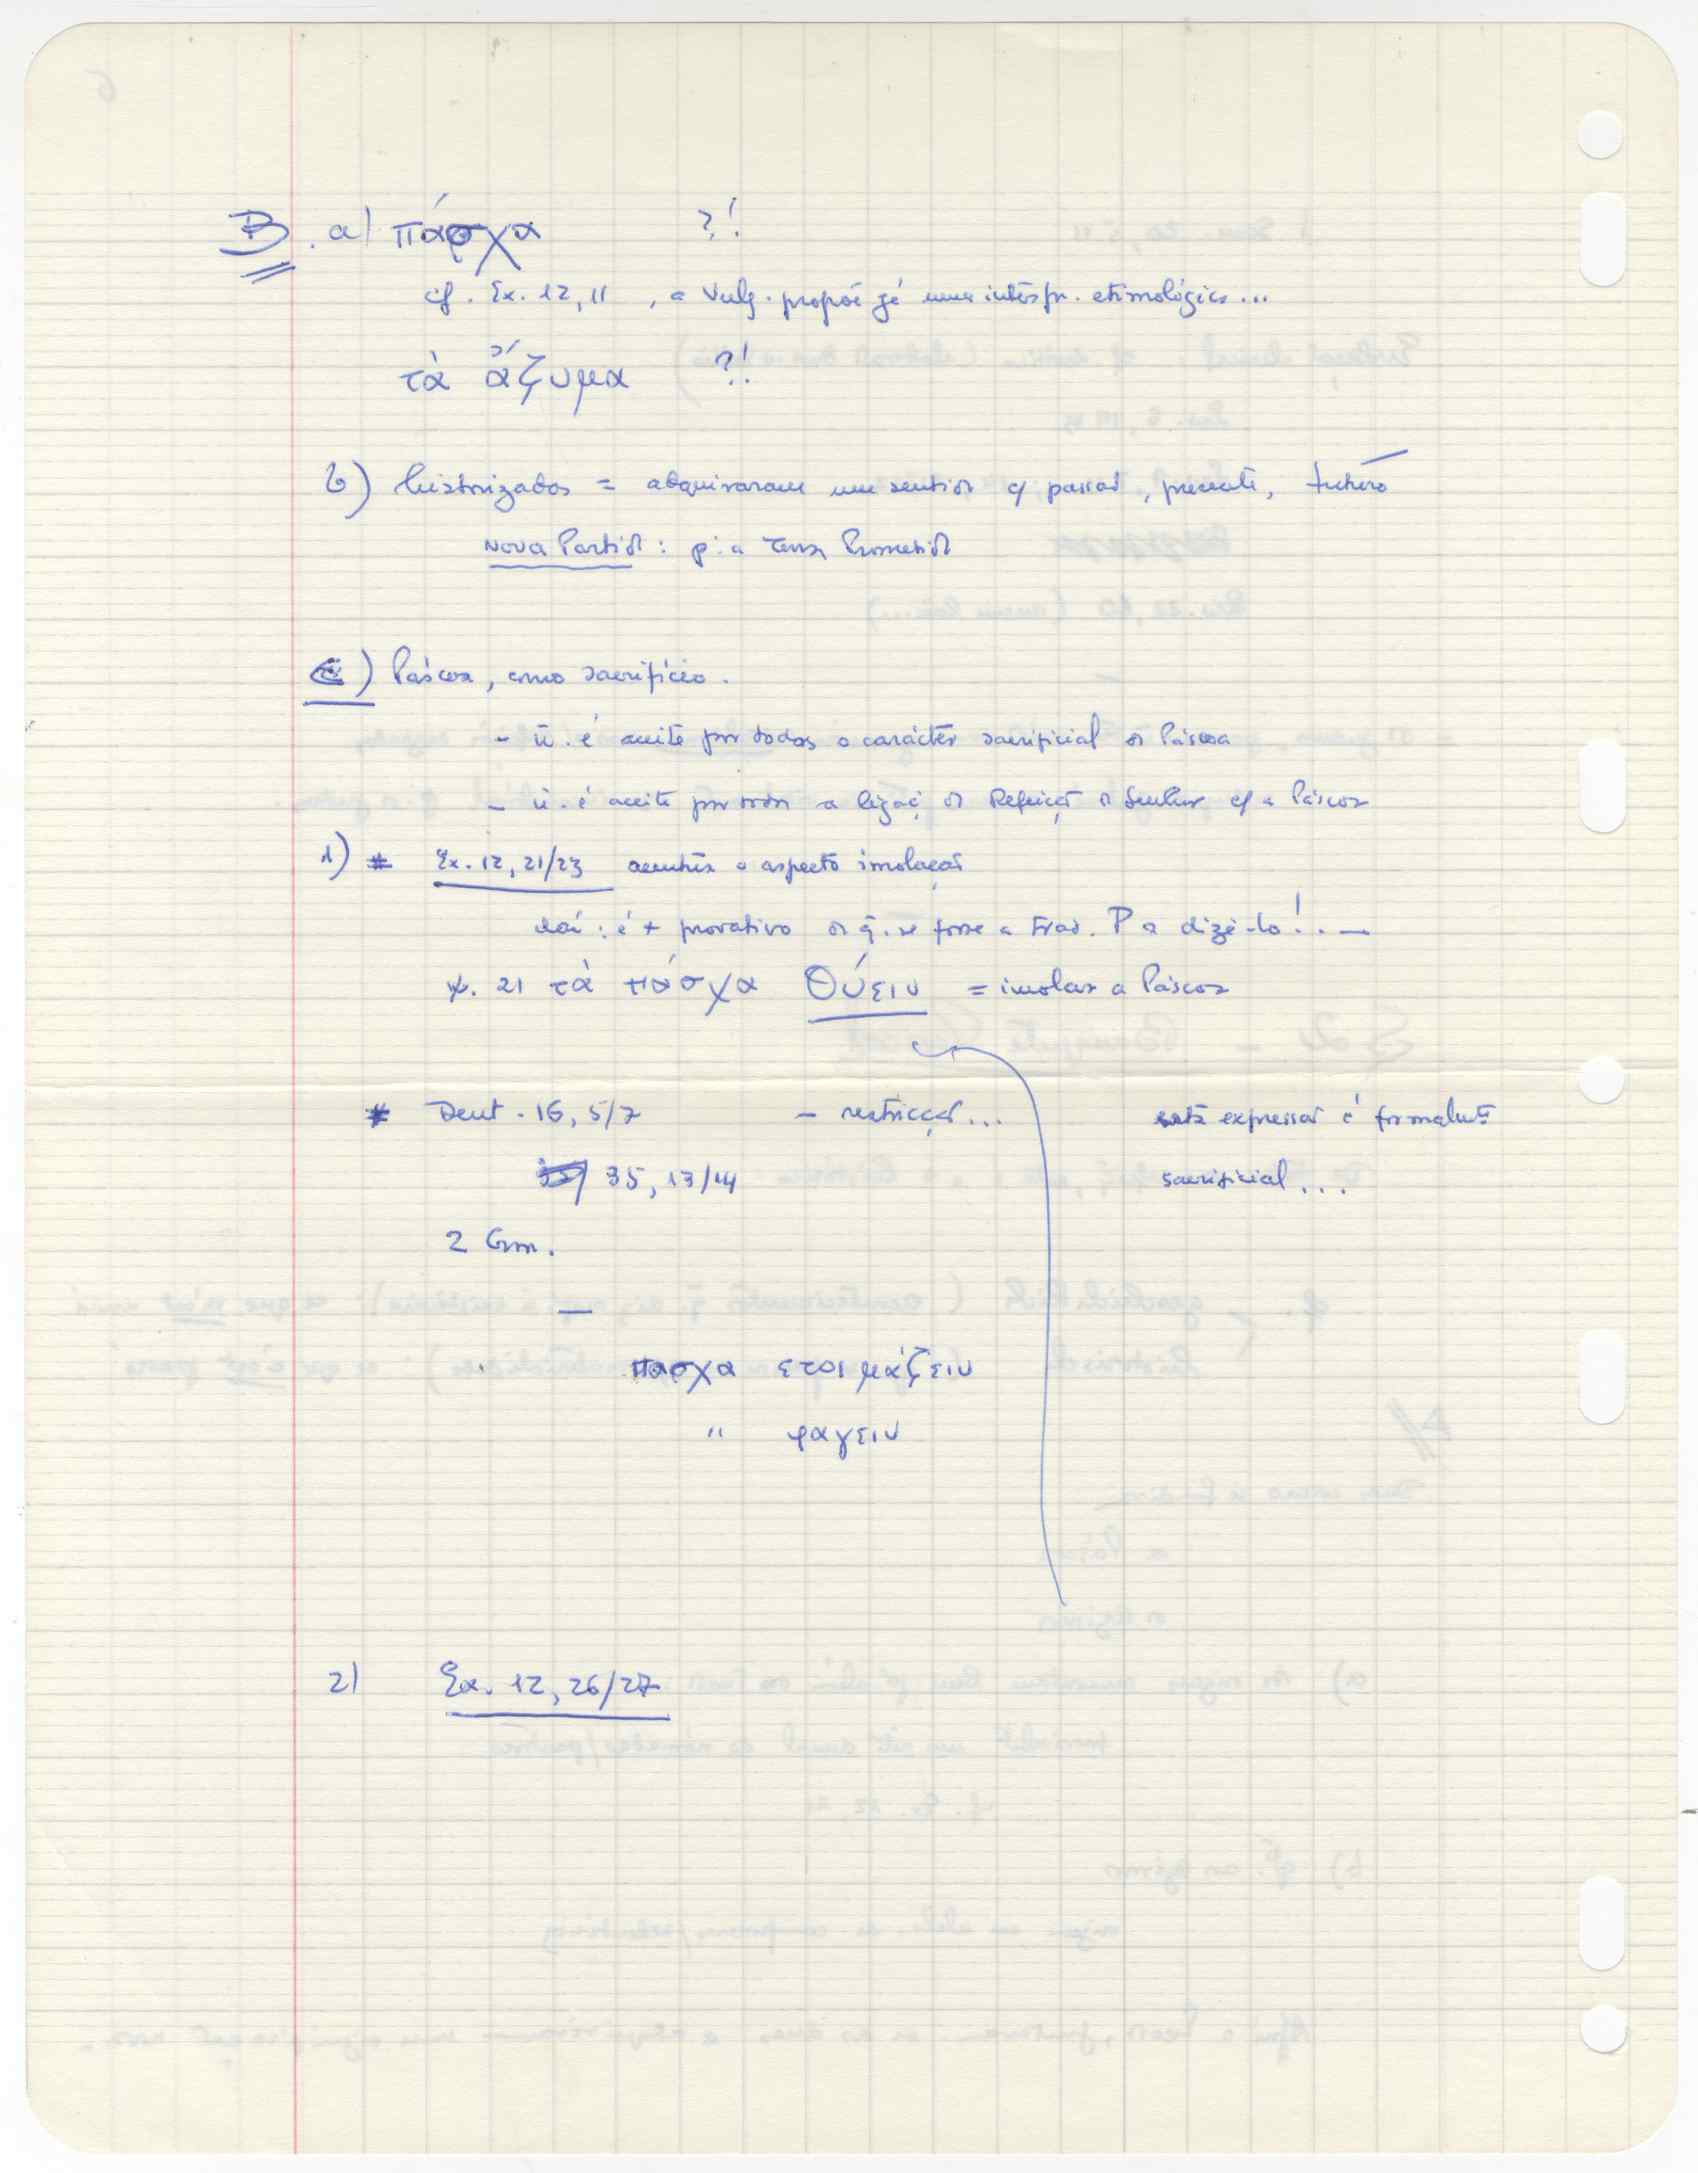 B. a) πάσχα ?!
cf. Ex. 12, 11, a Vulg. propõe já uma interpr. etimológica...
τὰ ἄζυμα ?!
b) historizados = adquiriram um sentido c/ passado, presente, futuro
Nova Partida: p: a Terra Prometida
C) Páscoa, como sacrifício.
- ñ. é aceite por todos o carácter sacrificial da Páscoa
- ñ. é aceite por todos a ligaç. da Refeição do Senhor c/ a Páscoa
1) # Ex. 12, 21/23 acentúa o aspecto imolação
daí: é + provativo do q̃. se fosse a Trad. P a dizê-lo!. —
v. 21 τὰ πάσχα θύειν = imolar a Páscoa
# Deut. 16, 5/7 - restricção... esta expressão é formalmte
35, 13/14 sacrificial...
2 Crón.
—
πασχα ετοιμάζειν
" φαγειν
2) Ex. 12, 26/27